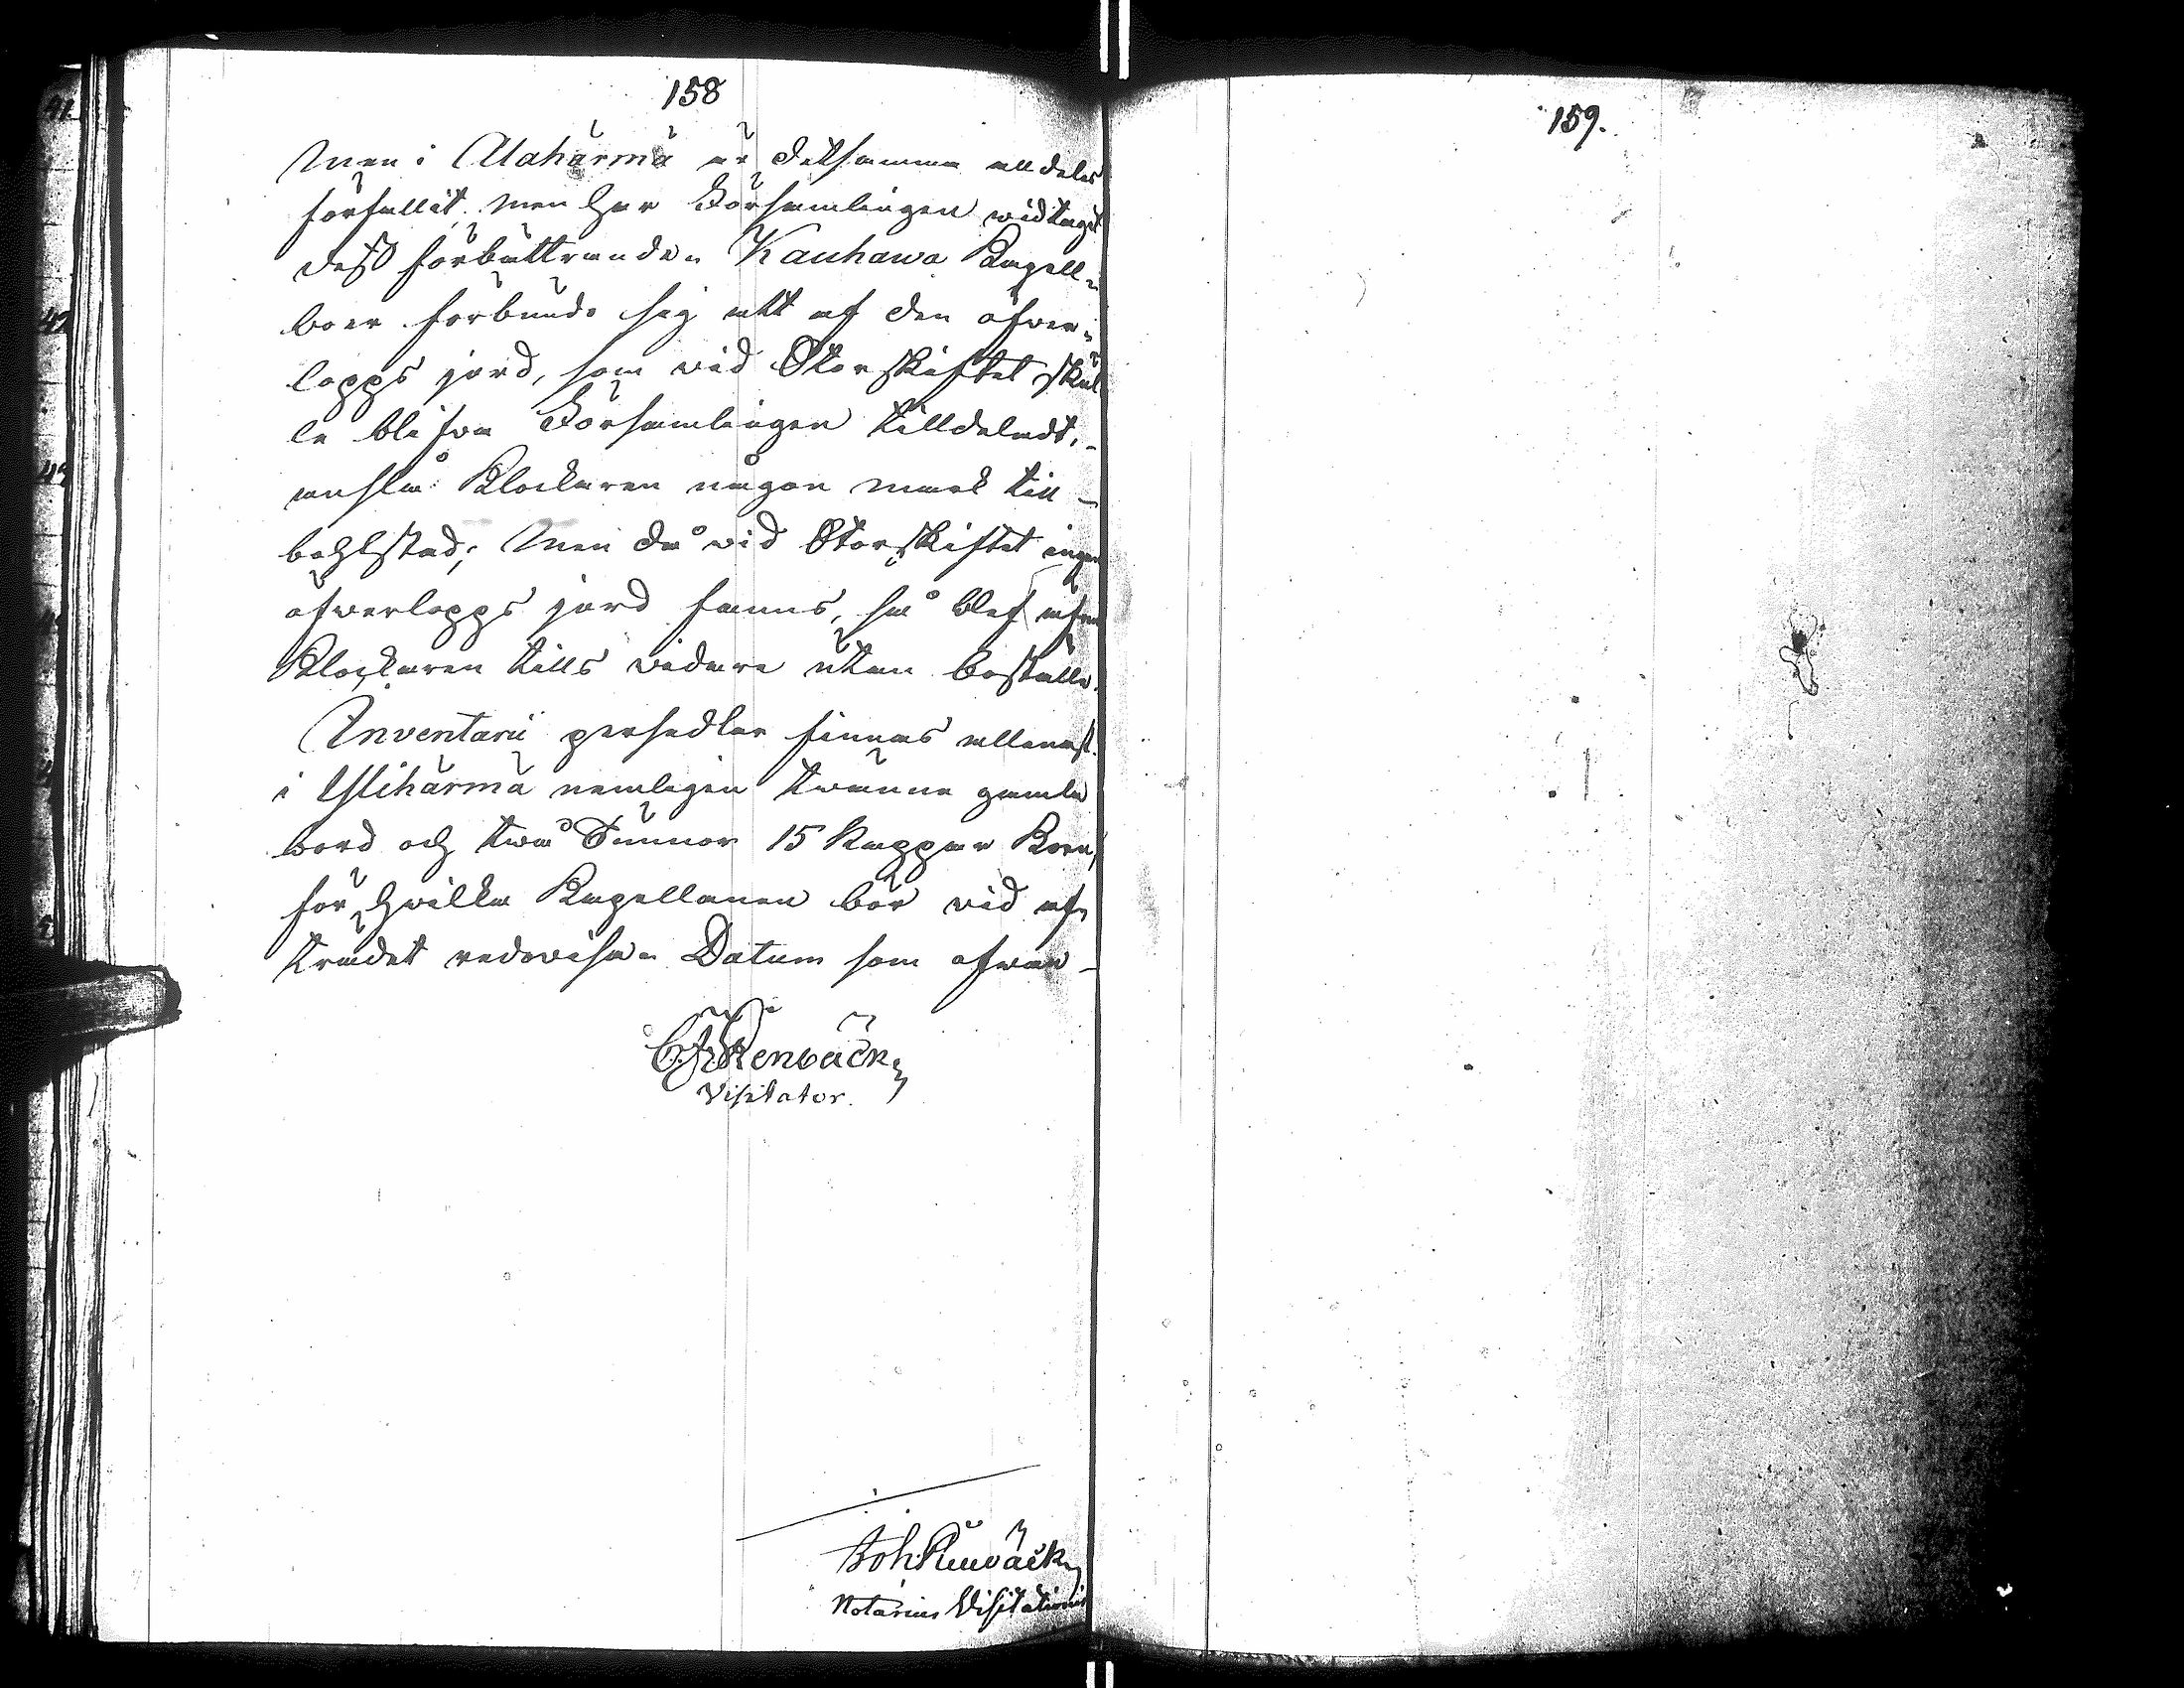 158
Men i Alahärmä är detsamma alldeles
förfallit, men har Församlingen widtagit
dess förbättrande. Kauhawa Kapell-
boer förbundo sig att af den öfwer-
lopps jord, som wid Storskiftet skul
le blifwa Församlingen tilldeladt,
anslå Klockaren någon mark till
bohlstad; Men då wid Storskiftet ingen
öfwerlopps jord fanns, så blef äfwen
Klockaren tills widare utan boställe.
Inventarii persedlar finnas allenast
i Ylihärmä nemligen twänne gamla
bord och twå Tunnor 15 Kappar Korn,
för hwilka Kapellanen bör wid af-
trädet redowisa. Datum som ofwan
C. F. Stenbäck
Visitator.
Joh Stenbäck
Notarius Visitationis
159.
41.
42
43